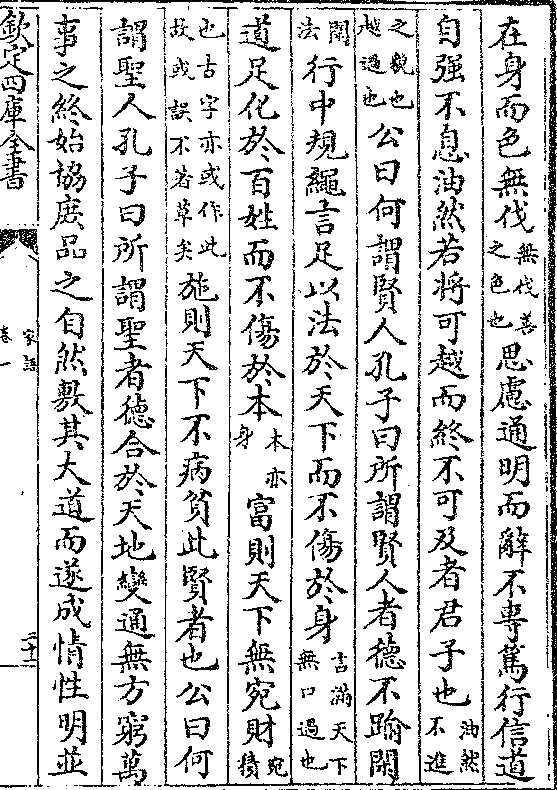 在身而色無伐無伐善之色也思慮通明而辭不專篤行信道
自强不息油然若將可越而終不可及者君子也油然不進
之貌也越過也公曰何謂賢人孔子曰所謂賢人者德不踰閑
閑法行中規繩言足以法於天下而不傷於身言滿天下無口過也
道足化於百姓而不傷於本本亦身富則天下無宛財宛積
也古字亦或作此故或誤不若草矣施則天下不病貧此賢者也公曰何
謂聖人孔子曰所謂聖者德合於天地變通無方窮萬
事之終始協庶品之自然敷其大道而遂成情性明並
欽定四庫全書
家語
卷一
二十二